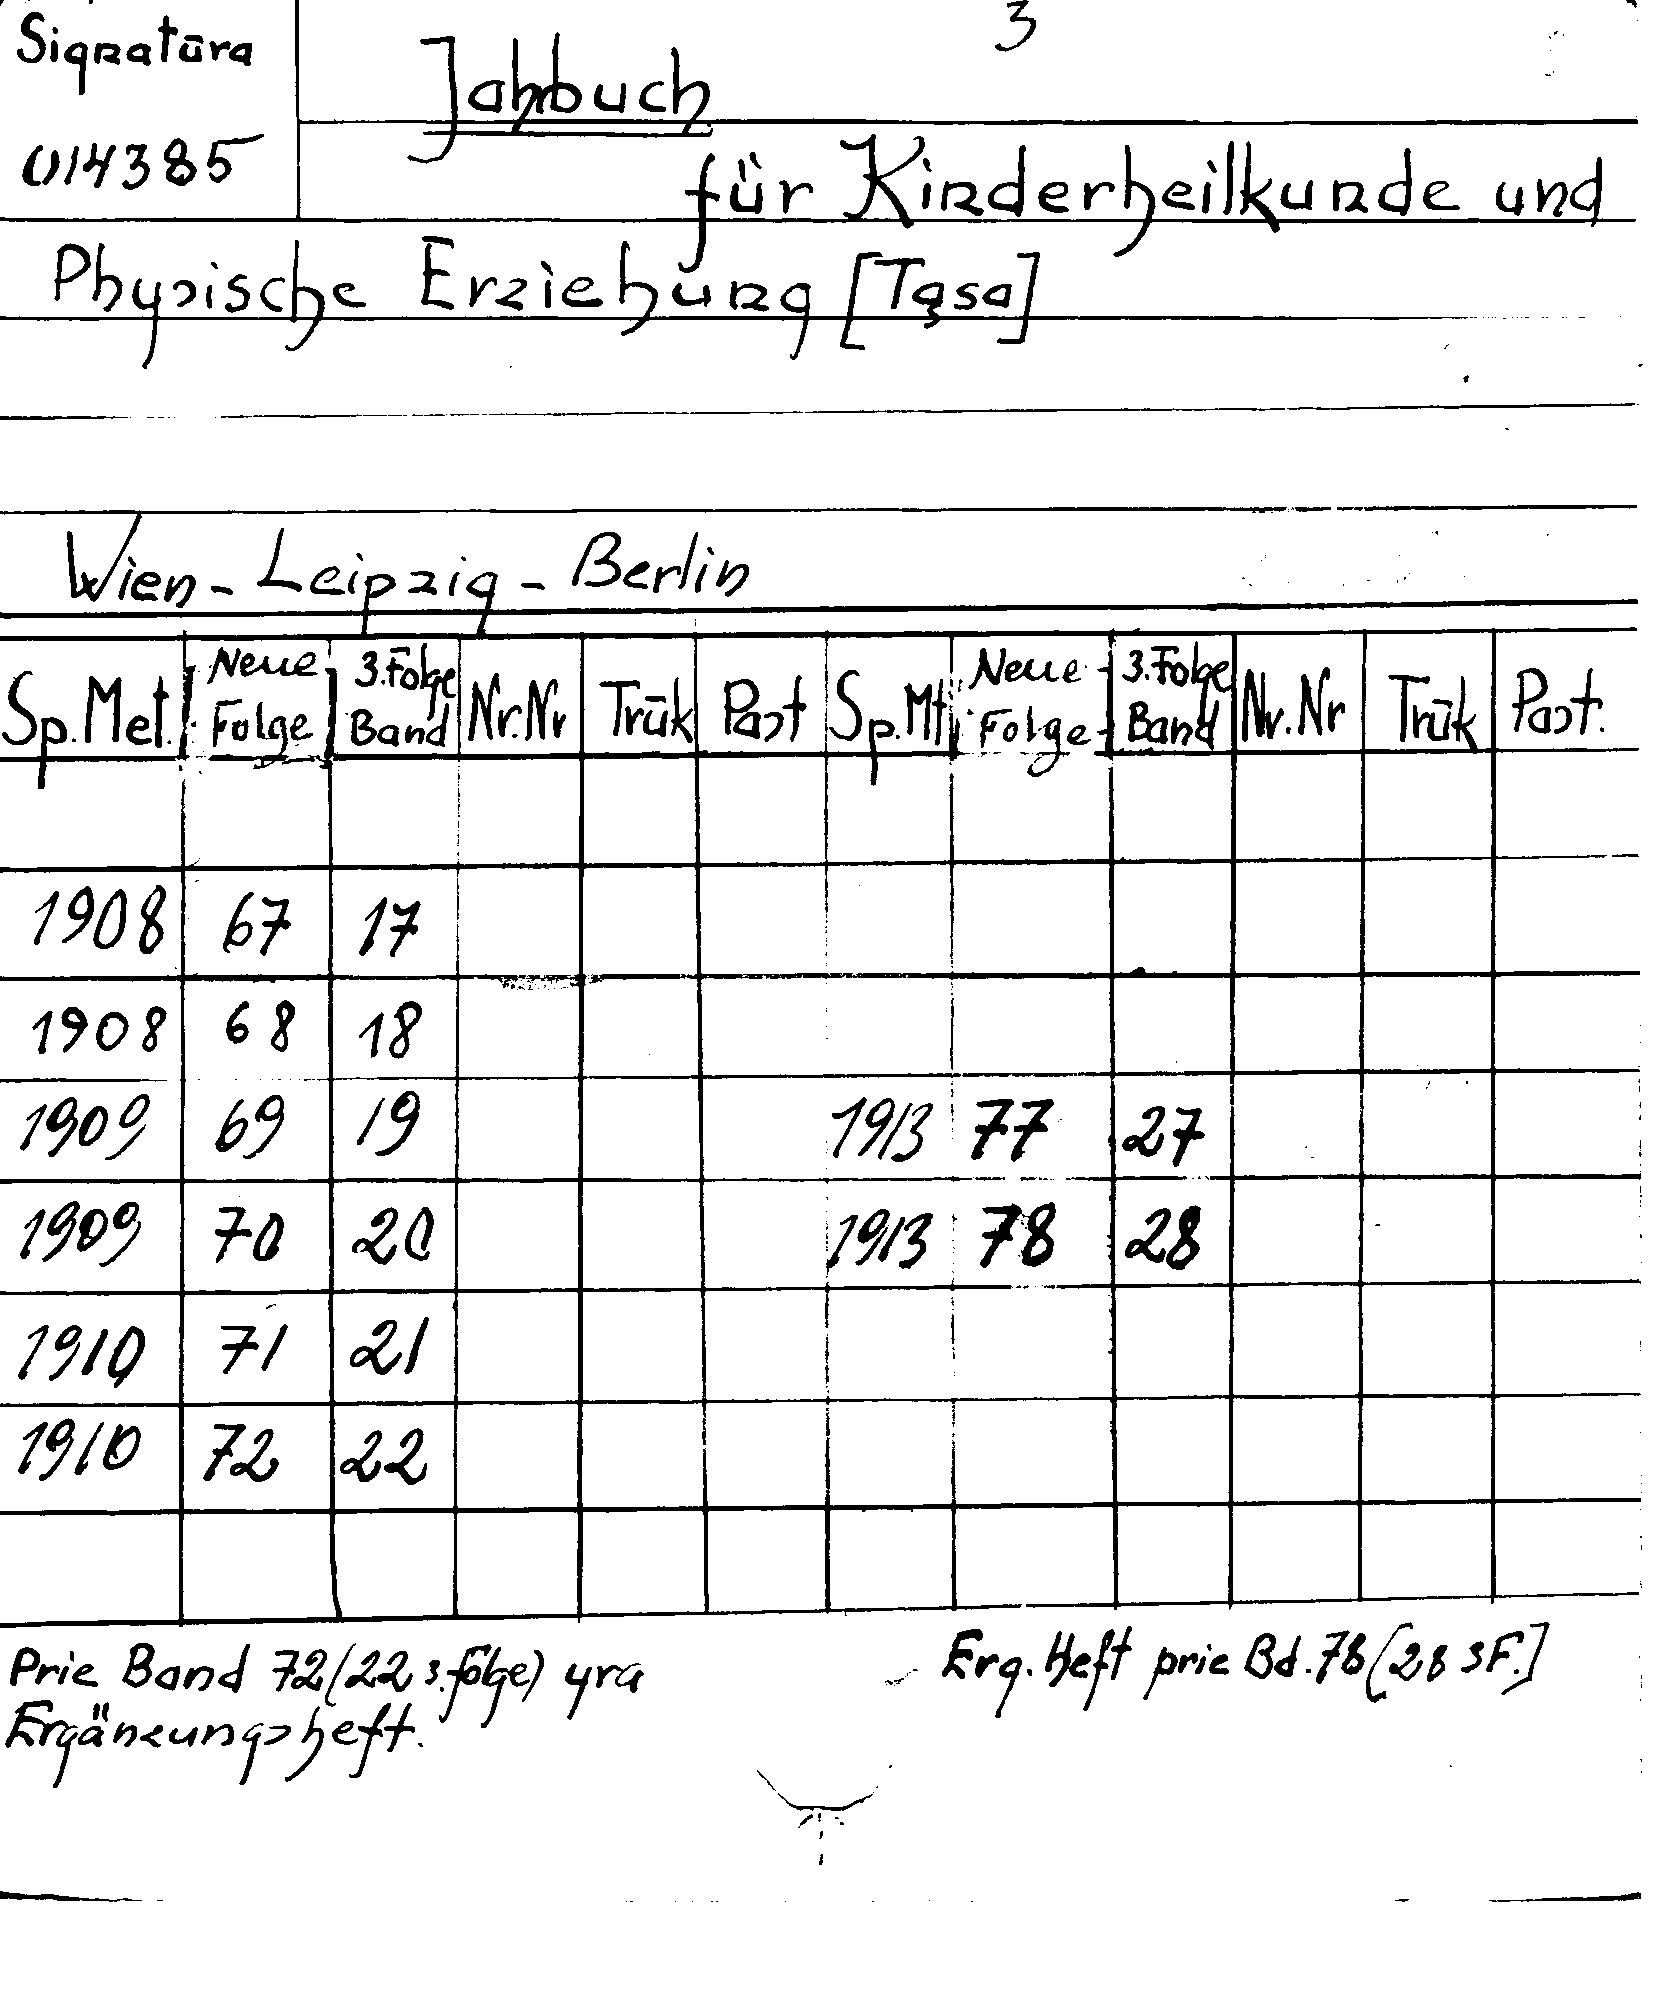 3
Signatūra
014385
Jahrbuch
für Kinderheilkunde und
Physische Erziehung [Tąsa]
Wien - Leipzig - Berlin
Sp. Met. Neue Folge 3. Folge Band Nr. Nr Trūk Past Sp. Mt. Neue Folge 3. Folge Band Nr. Nr Trūk Past.
1908 67 17
1908 68 18
1909 69 19 1913 77 27
1909 70 20 1913 78 28
1910 71 21
1910 72 22
Prie Band 72 (22 3. folge) yra
Ergänzungsheft.
Erg. Heft prie Bd. 78 [28 3F.]